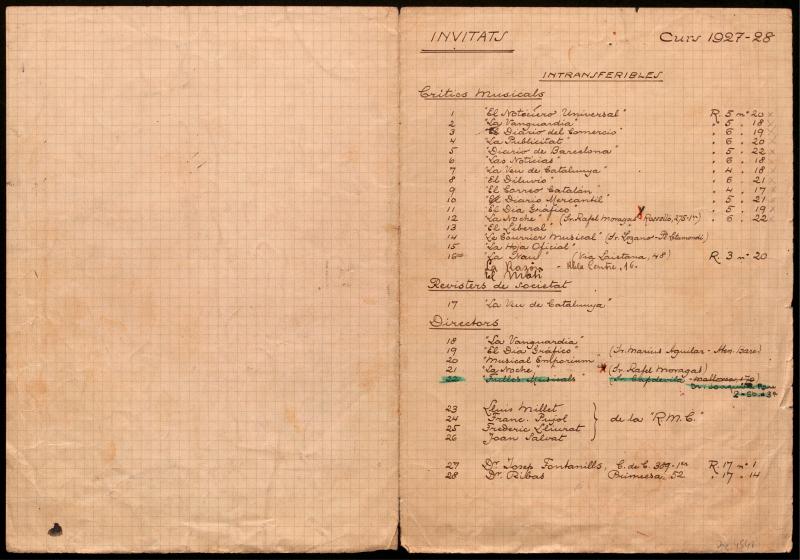 INVITATS Curs 1927-28
INTRANSFERIBLES
Crítics Musicals
1 "El Noticiero Universal" R. 5 nº 20
2 "La Vanguardia" . 5 . 18
3 "El Diario del Comercio" . 6 . 19
4 "La Publicitat" . 6 . 20
5 "Diario de Barcelona" . 5 . 22
6 "Las Noticias" . 6 . 18
7 "La Veu de Catalunya" . 4 . 18
8 "El Diluvio" . 6 . 21
9 "El Correo Catalán" . 4 . 17
10 "El Diario Mercantil" . 5 . 21
11 "El Dia Gráfico" . 5 . 19
12 "La Noche" (Sr. Rafel Moragas Rosselló, 275-1er) . 6 . 22
13 "El Liberal"
14 "Le Courrier Musical" (Sr. Lozano -
15 "La Hoja Oficial"
16 "La Nau" (Via Laietana, 48) R. 3 nº 20
La Razón - Rbla Centre, 16.
El Matí
Revisters de societat
17 "La Veu de Catalunya"
Directors
18 "La Vanguardia"
19 "El Dia Gráfico" (Sr. Marius Aguilar - Aten. Barc)
20 "Musical Emporium"
21 "La Noche" (Sr. Rafel Moragas)
22 "Fulles Musicals" (Sr. Capdevila - Mallorca, 170)
23 Lluis Millet
24 Franc. Pujol de la "R.M.C."
25 Frederic Lliurat
26 Joan Salvat
27 Dr. Josep Fontanills, C. de C. 389-1er R. 17 nº 1
28 Dr. Ribas Princesa, 52 . 17 . 14